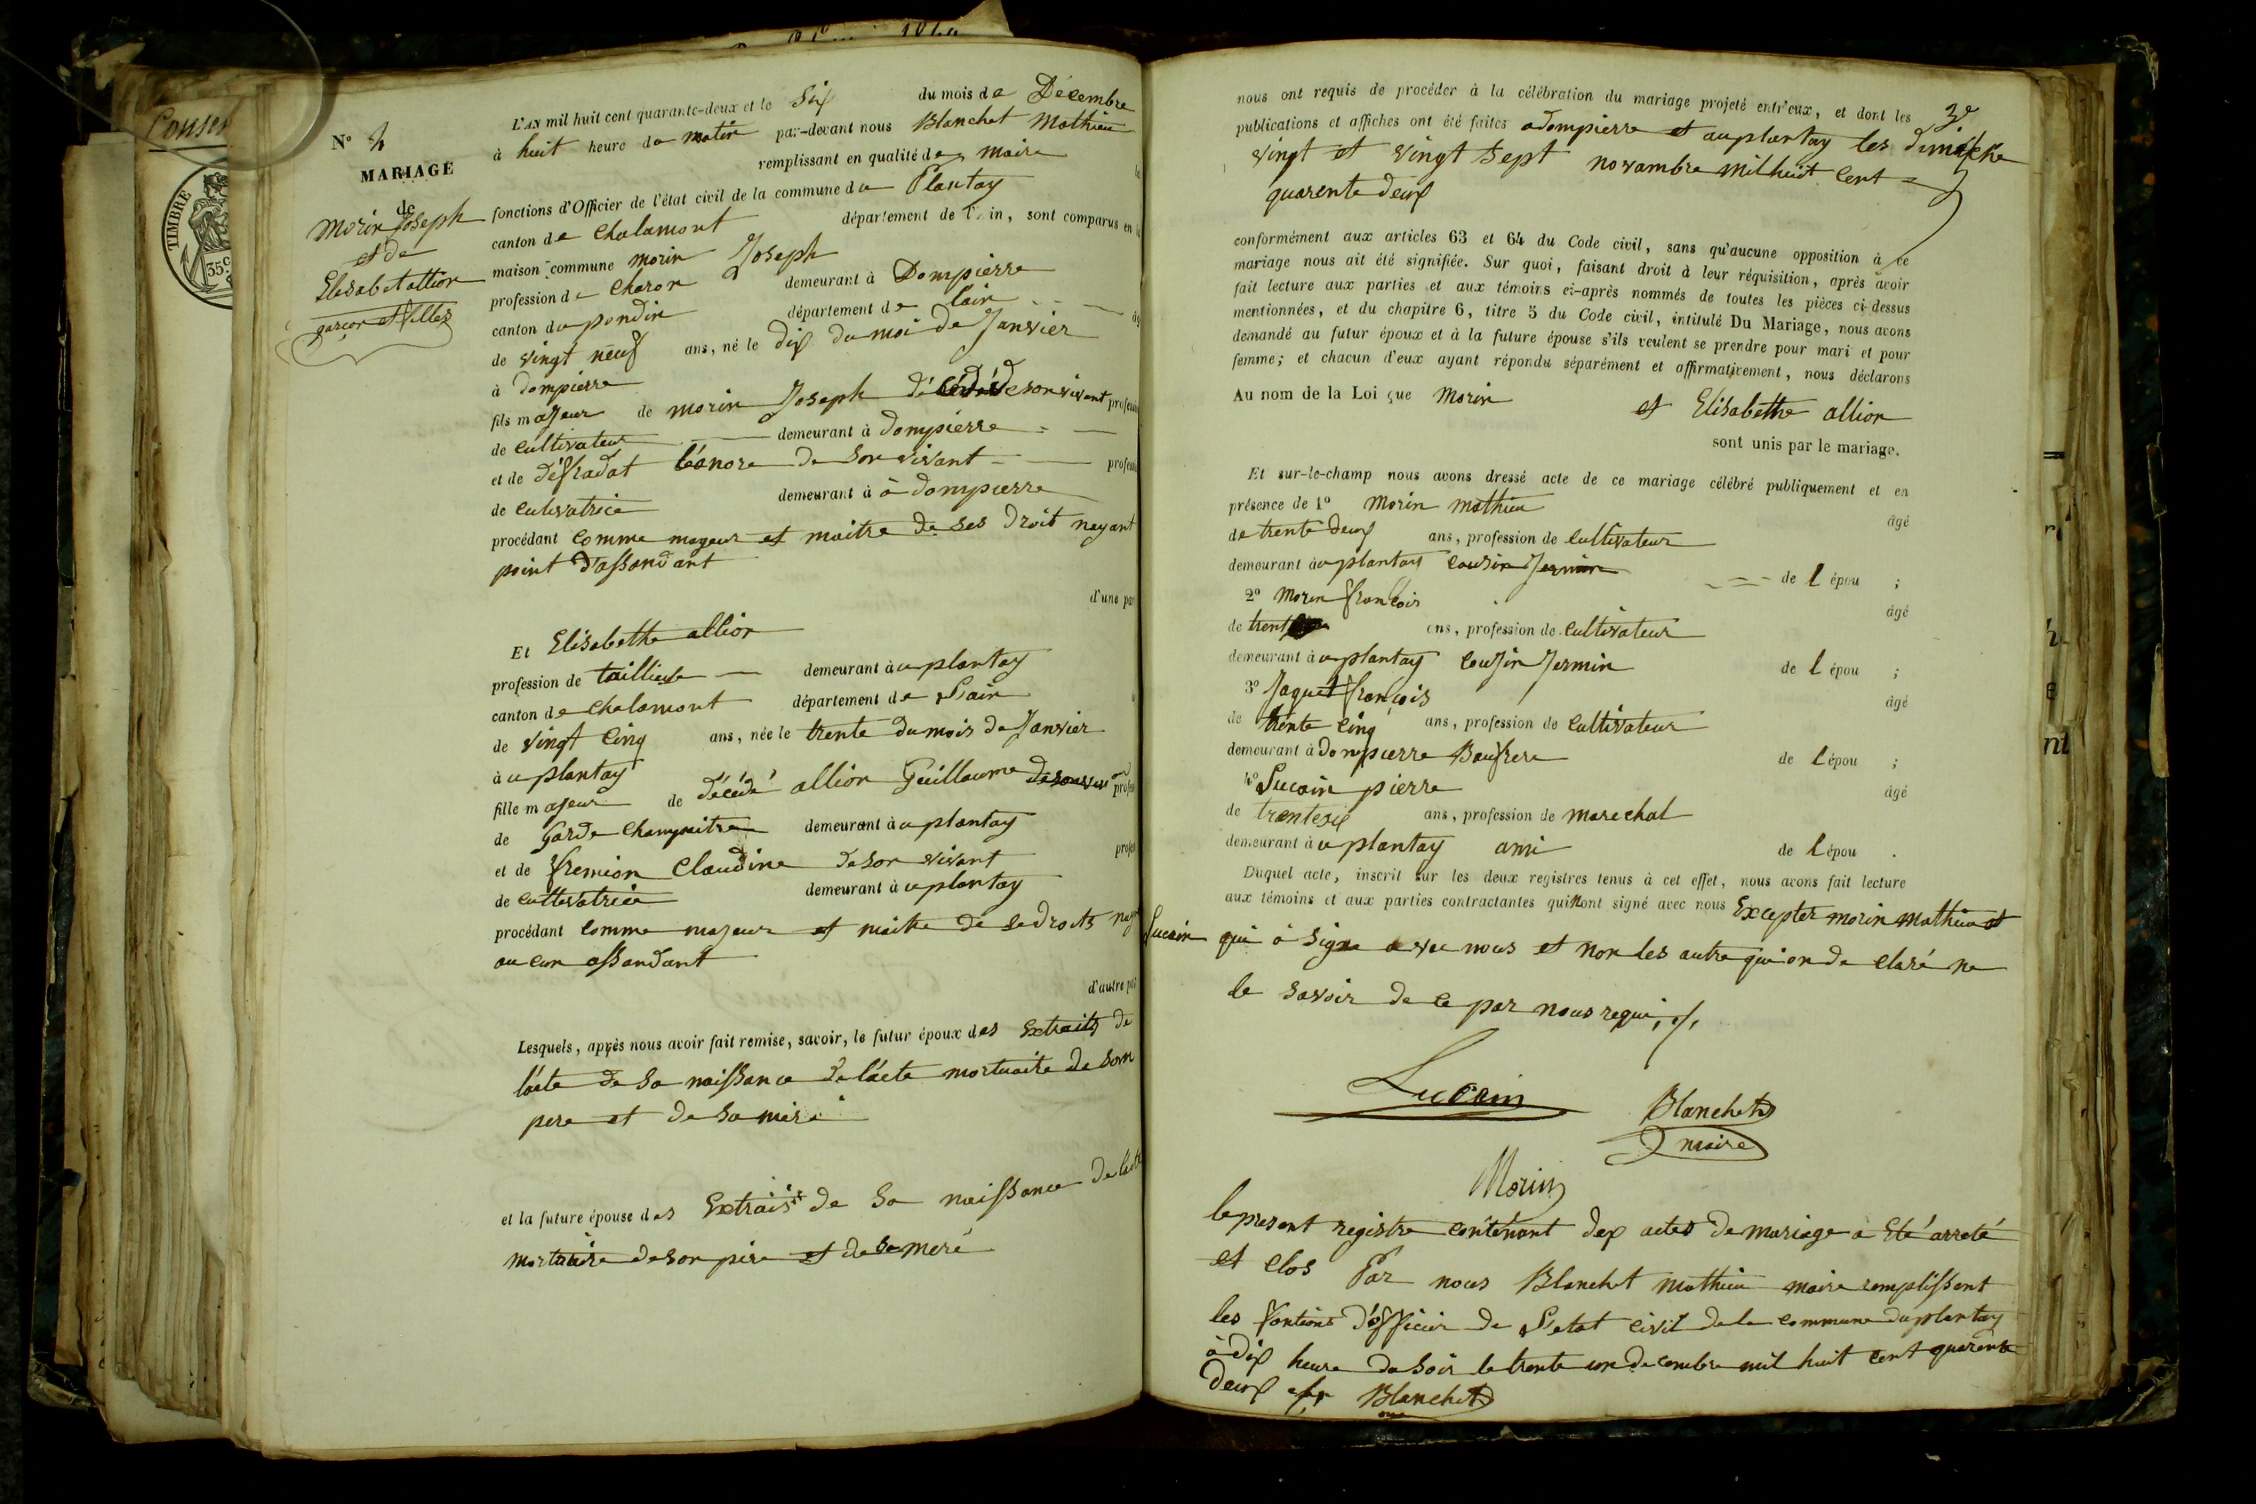 Conse
TIMBRE
35 c.
N° 2
MARIAGE
de
Morin Joseph
et de
Elisabet allion
garçon et filles
L'AN mil huit cent quarante-deux et le Six du mois de Décembre
à huit heure de matin par-devant nous Blanchet Mathieu
remplissant en qualité de maire
fonctions d'Officier de l'état civil de la commune du Plantay
canton de Chalamont département de l'Ain, sont comparus en la
maison commune morin Joseph
profession de Charon demeurant à Dompierre
canton du pondin département de lain
de vingt neuf ans, né le dix du moi de Janvier
à dompierre
fils majeur de morin Joseph décédé de son vivant profession
de cultivateur demeurant à dompierre
et de défradat léonore de son vivant profession
de culivatrice demeurant à à dompierre
procédant comme mageur et maitre de ses droit nayant
point dassandant
d'une par
Et Elisabethe allion
profession de taillieuse demeurant au plantay
canton de chalamont département de Lain
de vingt cinq ans, née le trente du mois de Janvier
à u plantay
fille majeur de décédé allion Guillaume de son viv profes
de Garde champaitre demeurant à u plantay
et de fremion Claudine de son vivant profes
de culltivatrice demeurant à u plantay
procédant comme majeur et maitre de se droits nay
aucun assandant
d'autre par
Lesquels, après nous avoir fait remise, savoir, le futur époux des Extraits de
lácte de sa naissance de lácte mortuaire de son
pere et de sa mère
et la future épouse des Extrais de sa naissance de lacte
mortuaire de son père et de sa meré
nous ont requis de procéder à la célébration du mariage projeté entr'eux, et dont les
publications et affiches ont été faites a dompierre et au plantay les dimache
vingt et vingt sept novambre mil huit cent
quarente deux
conformément aux articles 63 et 64 du Code civil, sans qu'aucune opposition à ce
mariage nous ait été signifiée. Sur quoi, faisant droit à leur réquisition, après avoir
fait lecture aux parties et aux témoins ci-après nommés de toutes les pièces ci-dessus
mentionnées, et du chapitre 6, titre 5 du Code civil, intitulé Du Mariage, nous avons
demandé au futur époux et à la future épouse s'ils veulent se prendre pour mari et pour
femme; et chacun d'eux ayant répondu séparément et affirmativement, nous déclarons
Au nom de la Loi que Morin et Elisabethe allion
sont unis par le mariage.
Et sur-le-champ nous avons dressé acte de ce mariage célébré publiquement et en
présence de 1° Morin mathieu âgé
de trente deux ans, profession de cultivateur
demeurant à u plantay cousin Jermin de l épou ;
2° Morin françois âgé
de trent ans, profession de cultivateur
demeurant à u plantay couzin Jermin de l épou ;
3° Jaquet françois âgé
de trente cinq ans, profession de cultivateur
demeurant à dompierre Baufrere de l épou ;
4° Lucain pierre âgé
de trentesix ans, profession de marechal
demeurant à u plantay ami de l épou .
Duquel acte, inscrit sur les deux registres tenus à cet effet, nous avons fait lecture
aux témoins et aux parties contractantes qui nont signé avec nous Excepter morin mathieu et
Lucain qui à signe avec nous et non les autre qui on de claré ne
le savoir de ce par nous requi
Lucain
Blanchet
maire
Morin
le present registre contenant dex actes de mariage a Eté arreté
et clos Par nous Blanchet Mathieu maire remplissant
les fontions d'officier de Letat civil de la commune du plantay
à dix heure du soir le trente un decembre mil huit cent quarente
deux Blanchet